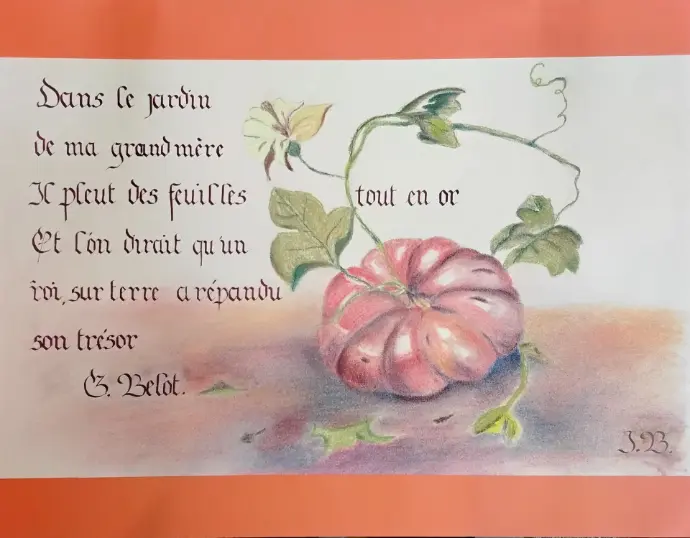 Dans le jardin
de ma grandmère
Il pleut des feuilles tout en or
Et l'ón dirait qu'un
roi, sur terre a répandu
son trésor
G. Belot.
J.B.